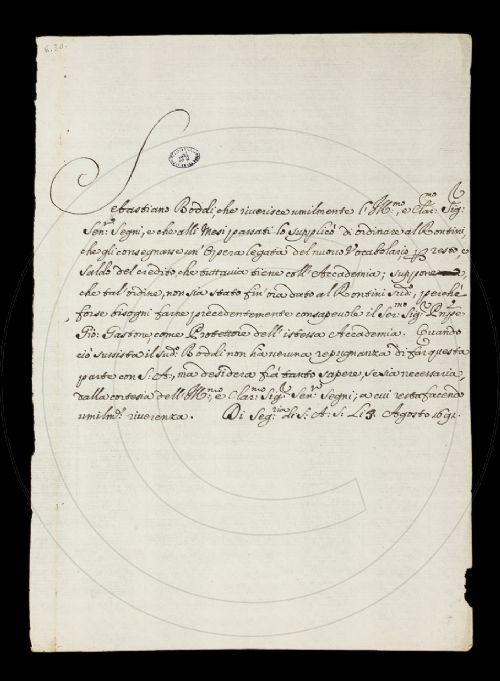 6.20.
Sebastiano Boddi, che riverisce umilmente l'Ill.mo, e Clar.mo Sig.r
Sen.r Segni, e che alli Mesi passati lo supplicò di ordinare al Rontini,
che gli consegnase un'Opera legata del nuovo Vocabolario p resto, e
saldo del credito, che tuttavia tiene coll'Accademia; suppone
che tal'ordine, non sia stato fin'ora dato al Rontini sud.o, perche
forse bisogni farne precedentemente consapevole il Ser.mo Sig.r Prnpe
Gio: Gastone, come Protettore dell'istessa Accademia. Quando
ciò sussista il sud.o Boddi non ha neruna repugnanza di far questa
parte con S: A:, ma desidera fra tanto sapere, se sia necessaria,
dalla cortesia dell'Ill.mo, e Clar.mo Sig.r Sen.r Segni, a cui resta facendo
umilm.e riverenza. Di Seg.ria di S: A: S: Li 3 Agosto 1691.